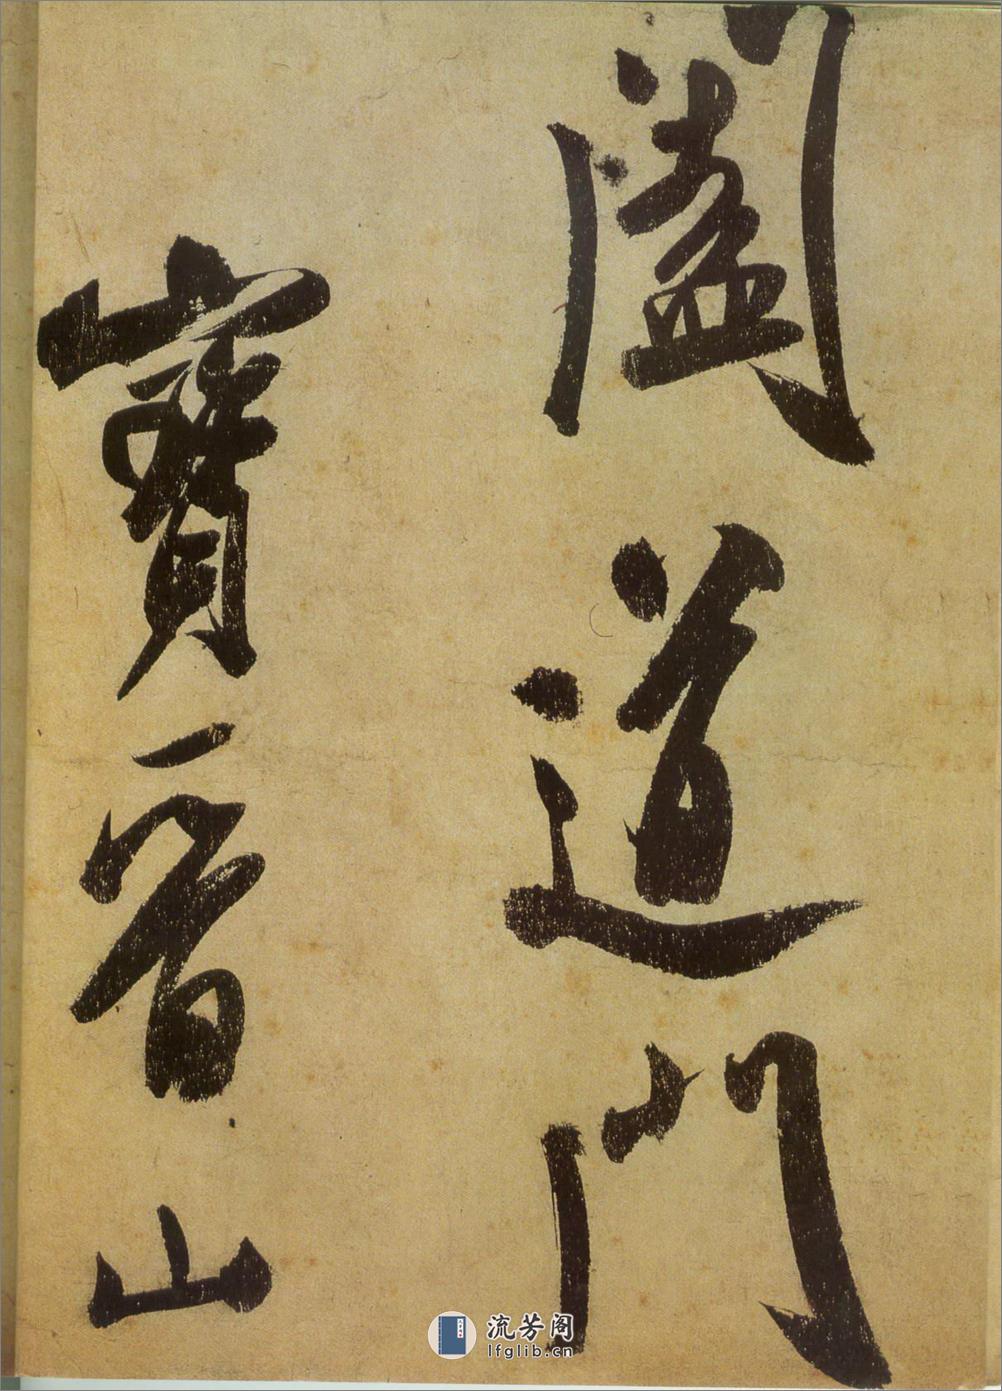 闔道門
寶晉山
流芳阁
lfglib.cn